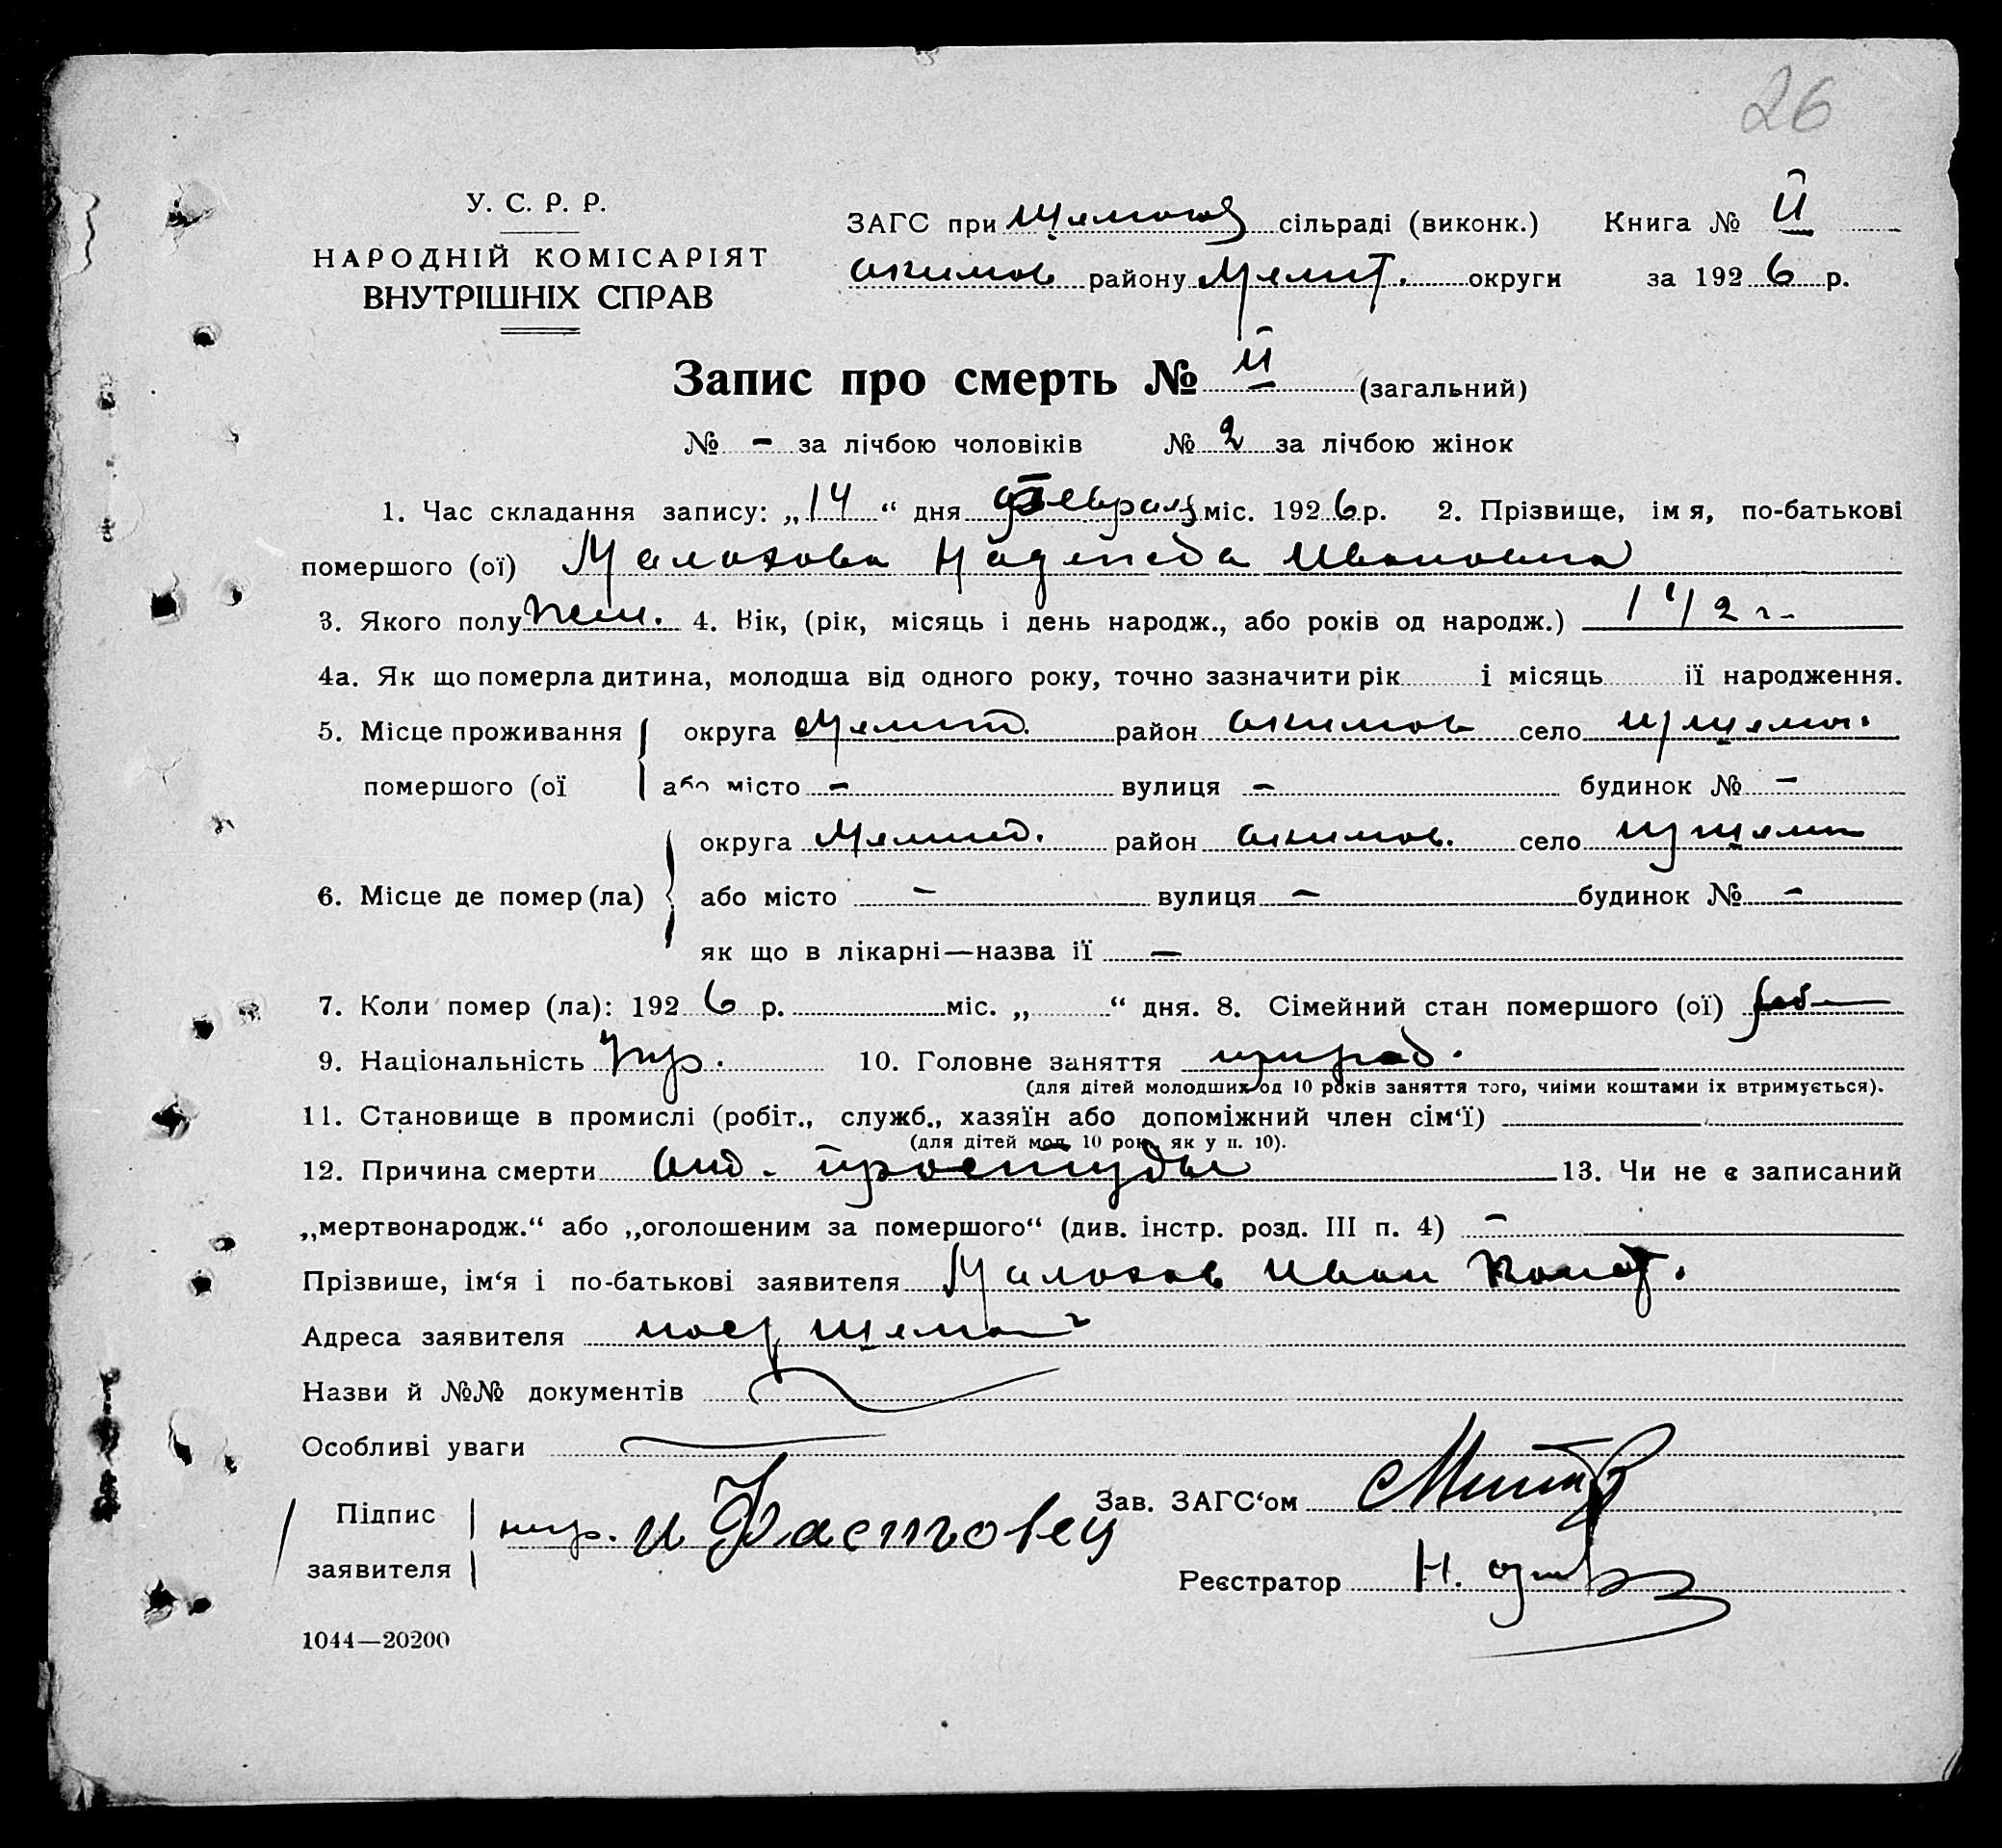 26
У. С. Р. Р.
НАРОДНІЙ КОМІСАРІЯТ
ВНУТРІШНІХ СПРАВ
ЗАГС при сільраді (виконк.) Книга № II
Акимов району Мелит. округи за 1926 р.
Запис про смерть № II (загальний)
№ - за лічбою чоловіків № 2 за лічбою жінок
1. Час складання запису: „14“ дня Февраля міс. 1926 р. 2. Прізвище, ім я, по-батькові
помершого (ої) Малохова Надежда Ивановна
3. Якого полу жен. 4. Вік, (рік, місяць і день народж., або років од народж.) 1 1/2 г.
4а. Як що померла дитина, молодша від одного року, точно зазначити рік і місяць її народження.
5. Місце проживання округа Мелит. район Акимов село
помершого (ої або місто - вулиця - будинок № -
округа Мелит. район Акимов. село
6. Місце де помер (ла) або місто - вулиця - будинок № -
як що в лікарні—назва її —
7. Коли помер (ла): 1926 р. міс. „ “ дня. 8. Сімейний стан помершого (ої)
9. Національність Укр. 10. Головне заняття
(для дітей молодших од 10 років заняття того, чиїми коштами їх втримується).
11. Становище в промислі (робіт., служб., хазяїн або допоміжний член сім‘ї)
(для дітей мол. 10 рок. як у п. 10).
12. Причина смерти от. простуды 13. Чи не є записаний
„мертвонародж.“ або „оголошеним за помершого“ (див. інстр. розд. III п. 4) -
Прізвише, ім‘я і по-батькові заявителя Малохов Иван
Адреса заявителя
Назви й №№ документів
Особливі уваги
Підпис заявителя и Фастовец Зав. ЗАГС‘ом
Реєстратор Н.
1044—20200